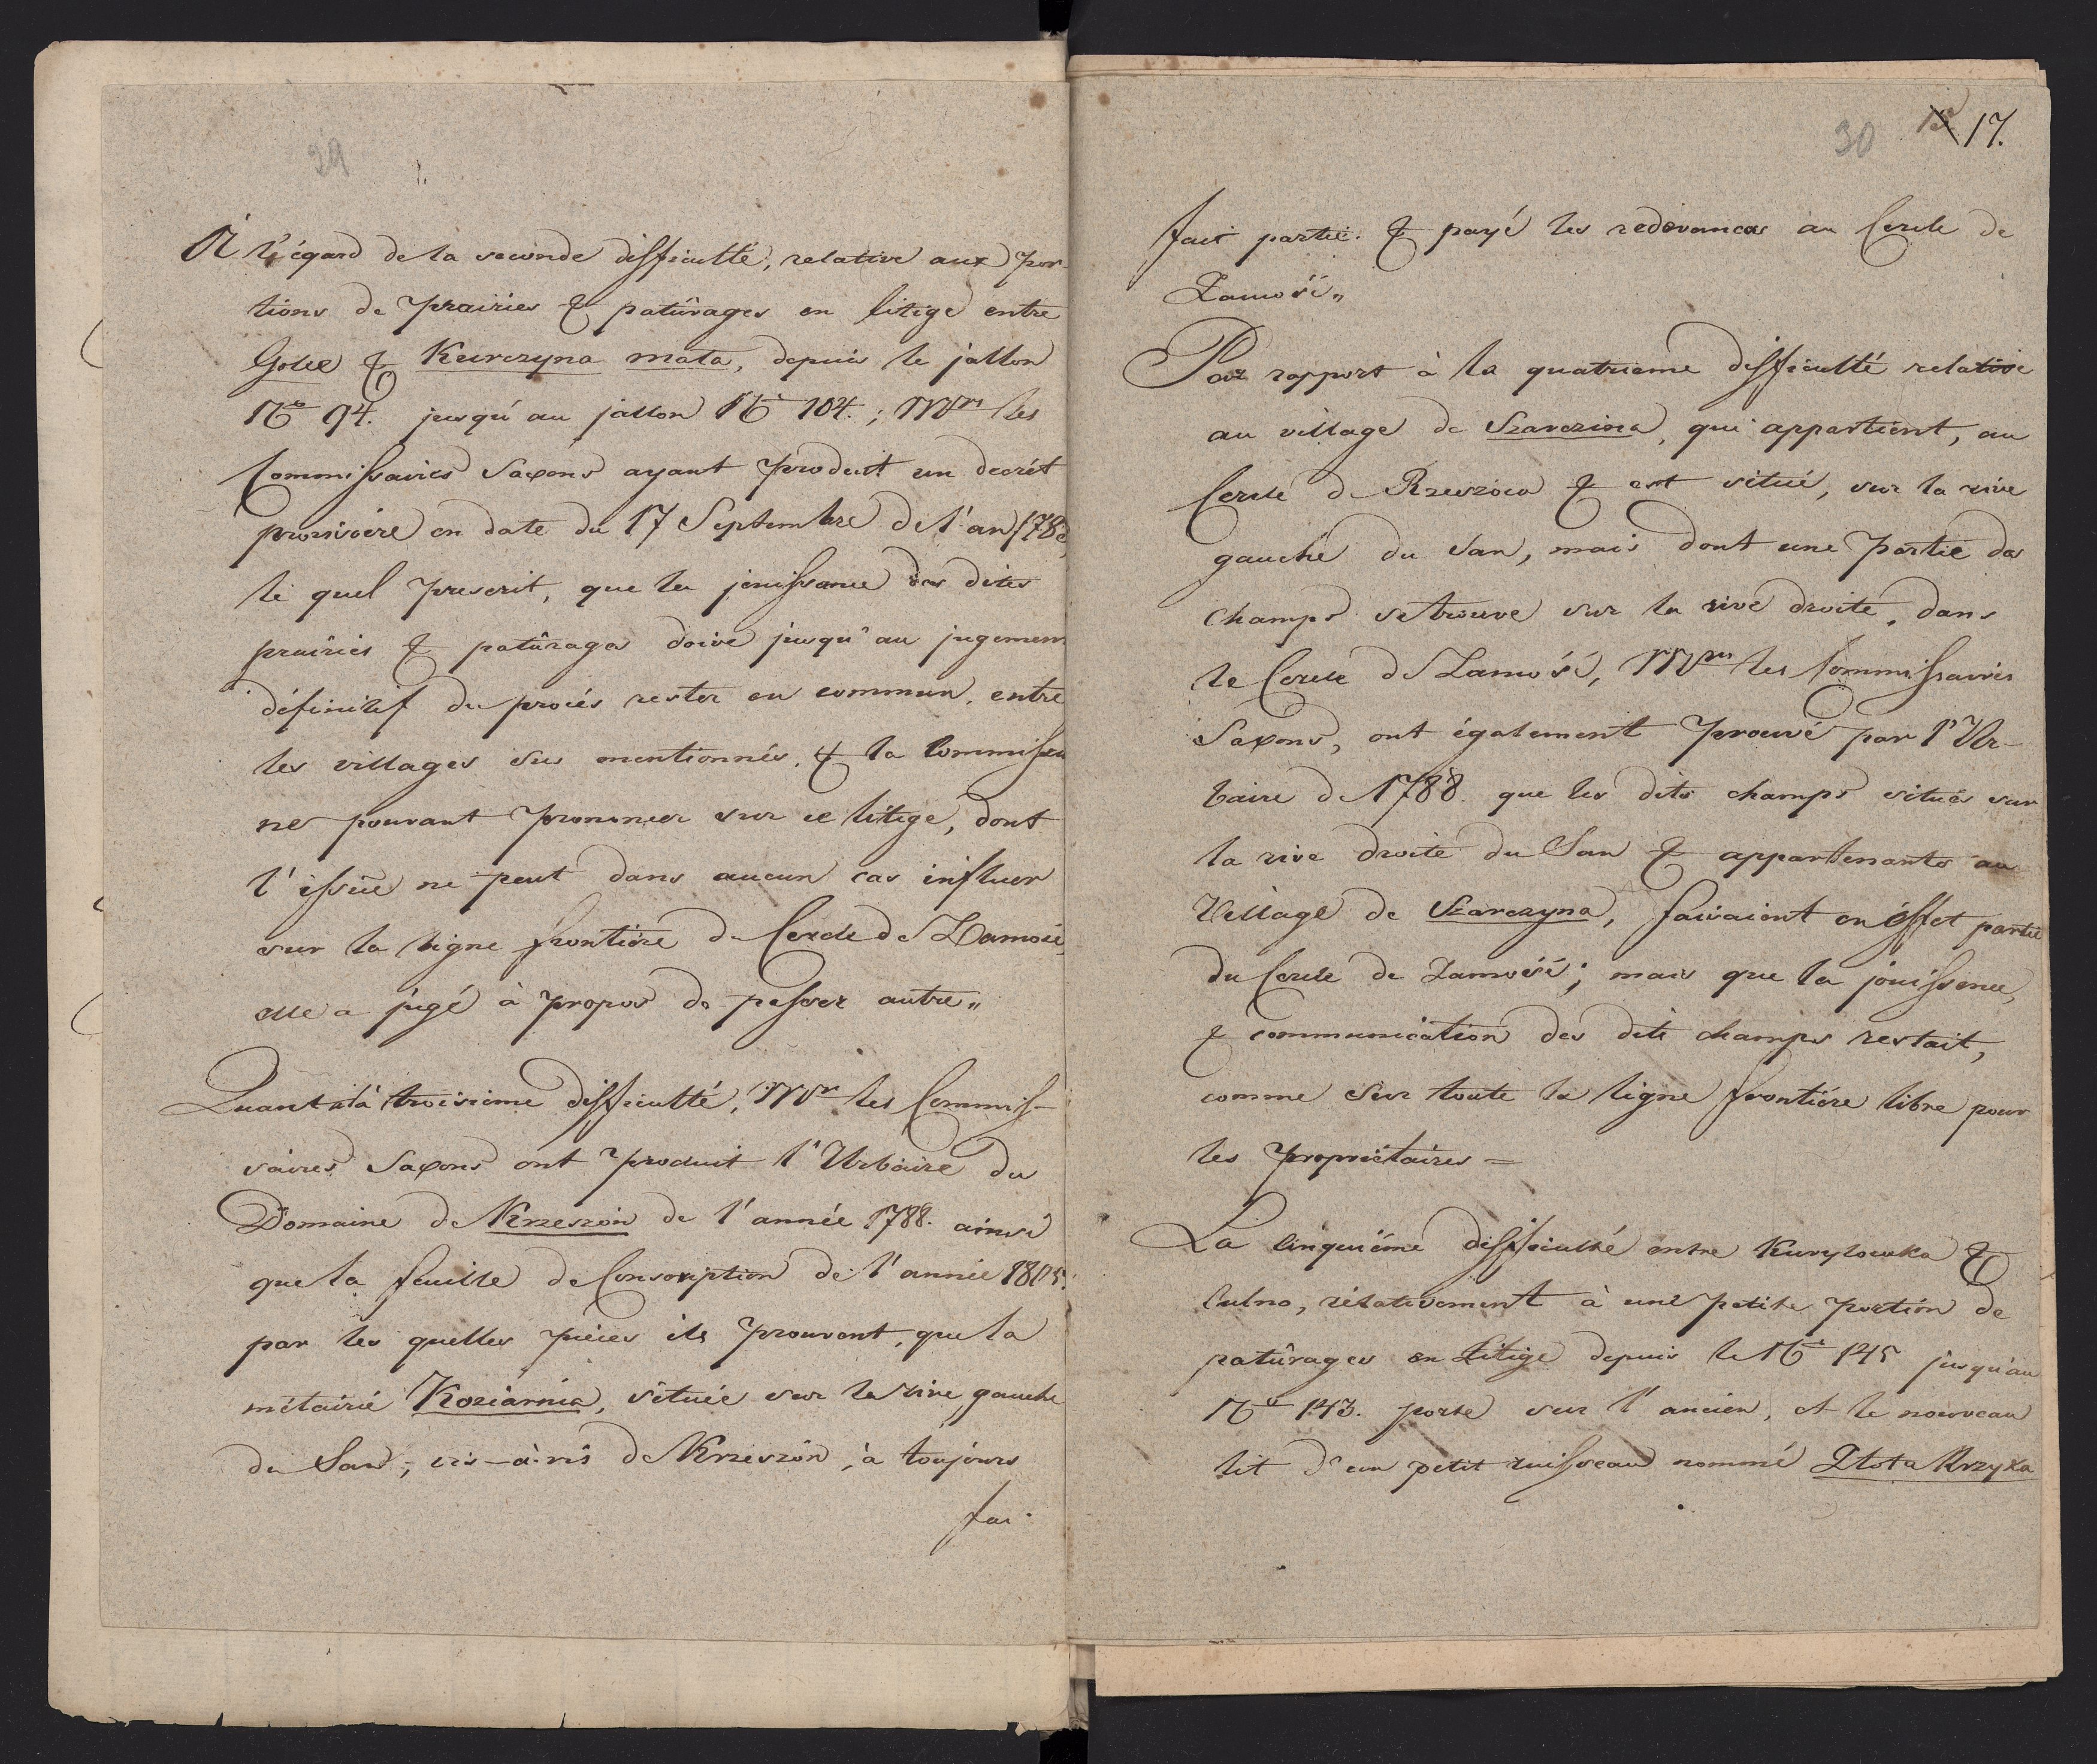 29
A l'égard de la seconde difficulté, relative aux por
tions de prairies & patûrages en litige entre
Golce & Kurczyna mała, depuis le jallon
No 94. jusqu'au jallon No 104.; Mrs les
Commissaires Saxons ayant produit un decrét
provisoire en date du 17 Septembre de l'an
le quel prescrit, que la jouissance des dites
prairies & patûrages doive jusqu'au jugement
définitif du procés rester en commun, entre
les villages sus mentionnés, & la Commission
ne pouvant prononcer sur ce litige, dont
l'issüe ne peut dans aucun cas influer
sur la ligne frontière du Cercle de Zamosć
elle a jugé à propos de passer outre„
Quant à la troisieme difficulté, Mrs les Commis-
saires Saxons ont produit l'Urbaire du
Domaine de Krzeszów de l'année 1788. ainsi
que la feuille de Conscription de l'année 1805.
par les quelles piéces ils prouvent, que la
métairie Koziarnia, située sur la rive gauche
du San, vis-à-vis de Krzeszón, à toujours
fai
30 15 17.
fait partie & payé les redevances au Cercle de
Zamość„
Par rapport à la quatrieme difficulté relative
au village de Szarczina, qui appartient, au
Cercle de Rzeszow & est situé, sur la rive
gauche du San, mais dont une partie des
champs se trouve sur la rive droite, dans
le Cercle de Zamość, Mrs les Commissaires
Saxons, ont également prouvé par l'Ur-
baire de 1788. que les dits champs situés sur
la rive droite du San & appartenants au
Village de Szarczyna, faisaient en éffet partie
du Cercle de Zamość; mais que la jouissence,
& communication des dits champs restait,
comme sur toute la ligne frontiére libre pour
les proprietaires =
La Cinquiéme difficulté entre Kurylowka &
Culno, rélativement à une petite portion de
patûrages en Litige depuis le No 145 jusqu'au
No 143. porte sur l'ancien, et le nouveau
lit d'un petit ruisseau nommé Złota Krzyka